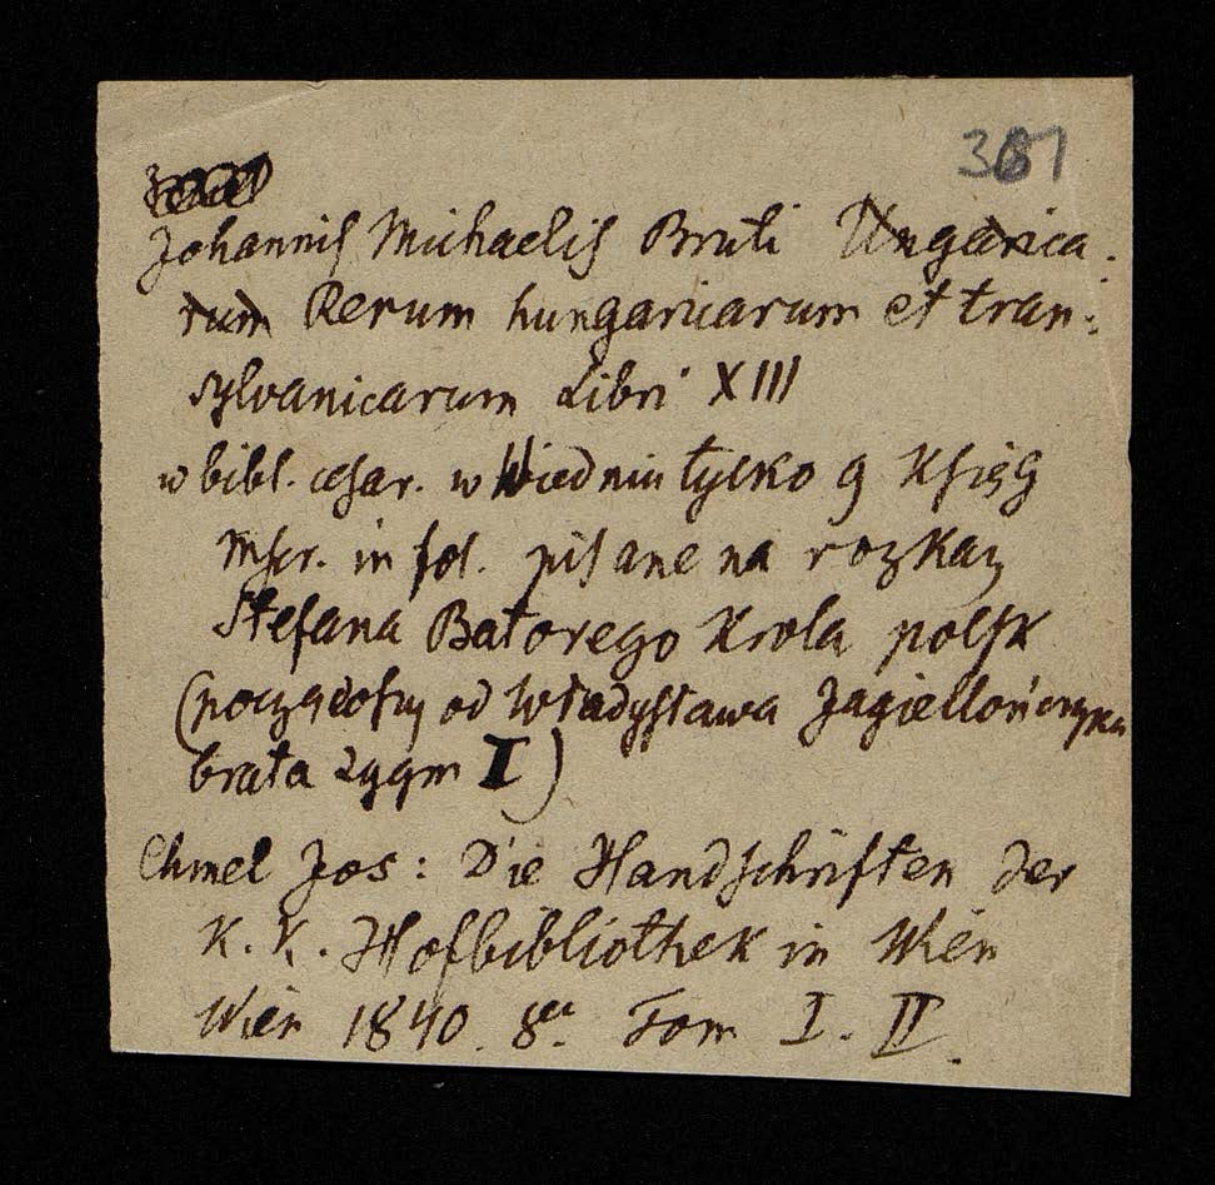 Johannis Michaelis Bruti Ungarica:
rum Rerum hungaricarum et tran:
sylvanicarum Libri XIII
w bibl. cesar. w Wiedniu tylko 9 Ksiąg
mscr. in fol. pisane na rozkaz
Stefana Batorego Krola polsk
(począwszy od Władysława Jagiellończyka
brata Zygm I)
Chmel Jos: Die Handschriften der
K. K. Hofbibliothek in Wien
Wien 1840. Tom I. II.